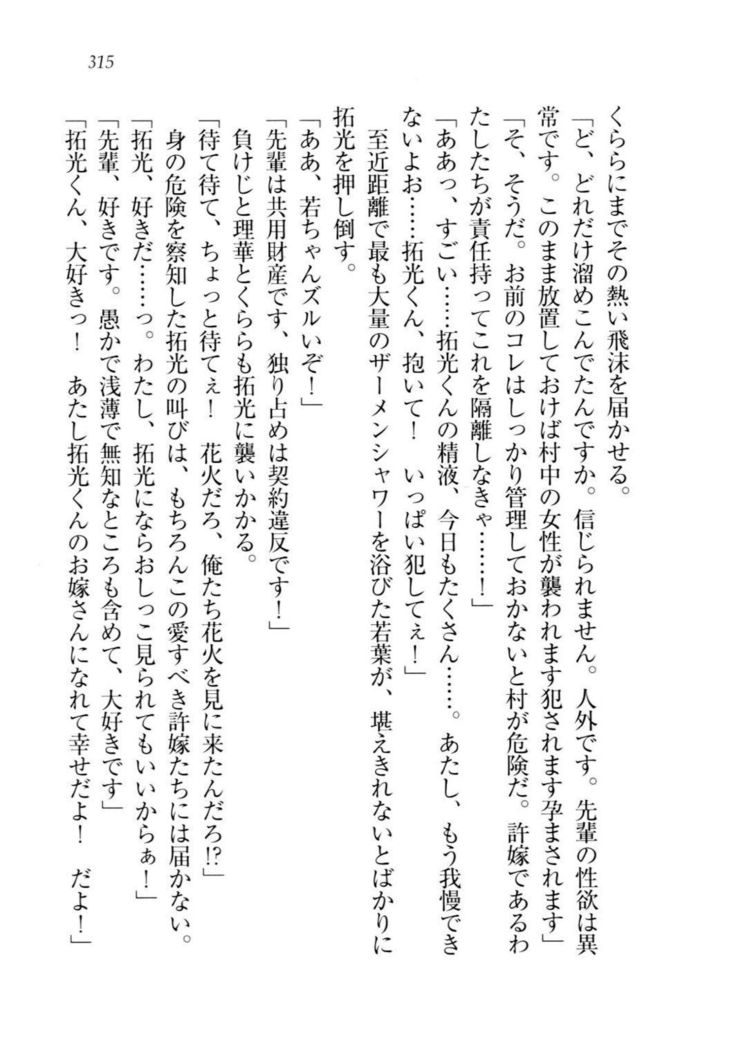 315
くららにまでその熱い飛沫を届かせる。
「ど、どれだけ溜めこんでたんですか。信じられません。人外です。先輩の性欲は異
常です。このまま放置しておけば村中の女性が襲われます犯されます孕まされます」
「そ、そうだ。お前のコレはしっかり管理しておかないと村が危険だ。許嫁であるわ
たしたちが責任持ってこれを隔離しなきゃ……！」
「ああっ、すごい……拓光くんの精液、今日もたくさん……。あたし、もう我慢でき
ないよお……拓光くん、抱いて！　いっぱい犯してぇ！」
　至近距離で最も大量のザーメンシャワーを浴びた若葉が、堪えきれないとばかりに
拓光を押し倒す。
「ああ、若ちゃんズルいぞ！」
「先輩は共用財産です、独り占めは契約違反です！」
　負けじと理華とくららも拓光に襲いかかる。
「待て待て、ちょっと待てぇ！　花火だろ、俺たち花火を見に来たんだろ!?」
　身の危険を察知した拓光の叫びは、もちろんこの愛すべき許嫁たちには届かない。
「拓光、好きだ……っ。わたし、拓光にならおしっこ見られてもいいからぁ！」
「先輩、好きです。愚かで浅薄で無知なところも含めて、大好きです」
「拓光くん、大好きっ！　あたし拓光くんのお嫁さんになれて幸せだよ！　だよ！」